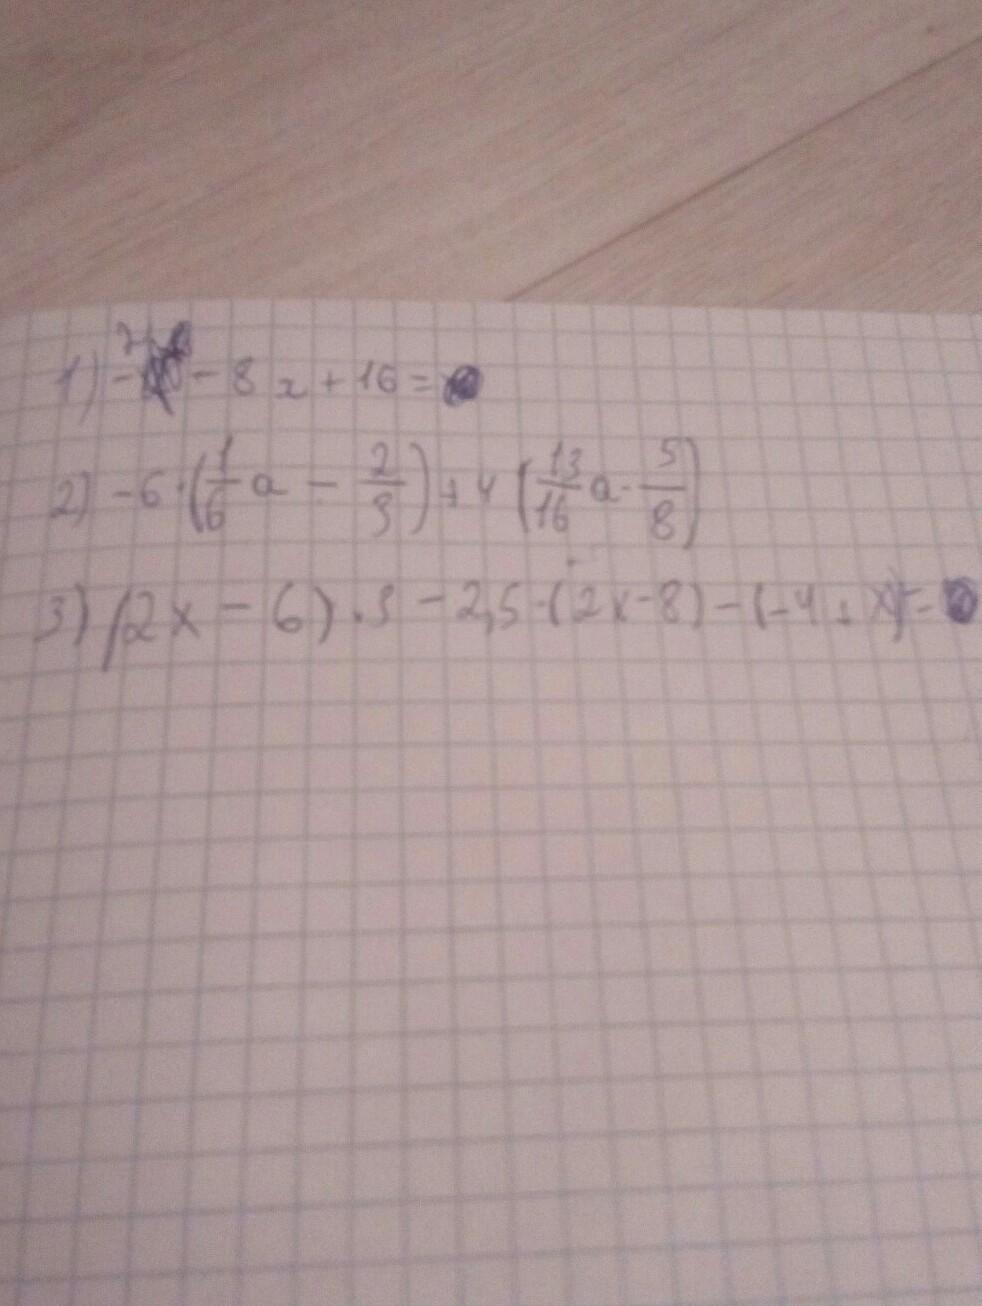 1) - 8x + 16 =
2) -6 · (1/6 a - 2/9) + 4 (13/16 a - 5/8)
3) (2x - 6) · 3 - 2,5 · (2x - 8) - (-4 + x) =